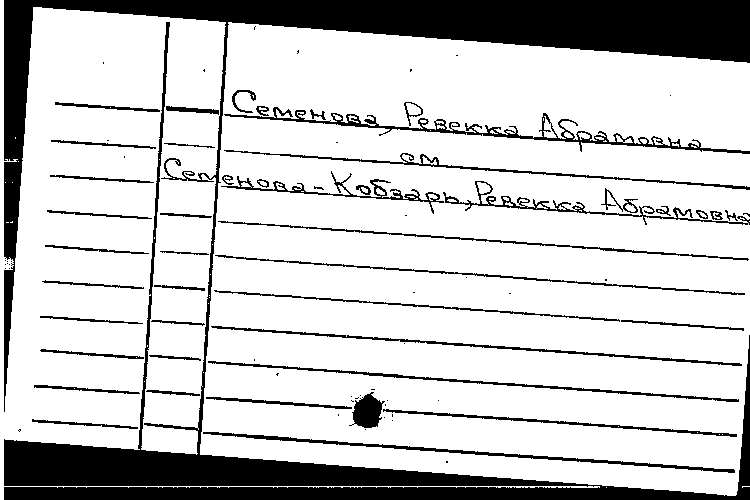 Семенова, Ревекка Абрамовна
см.
Семенова-Кобзарь, Ревекка Абрамовна